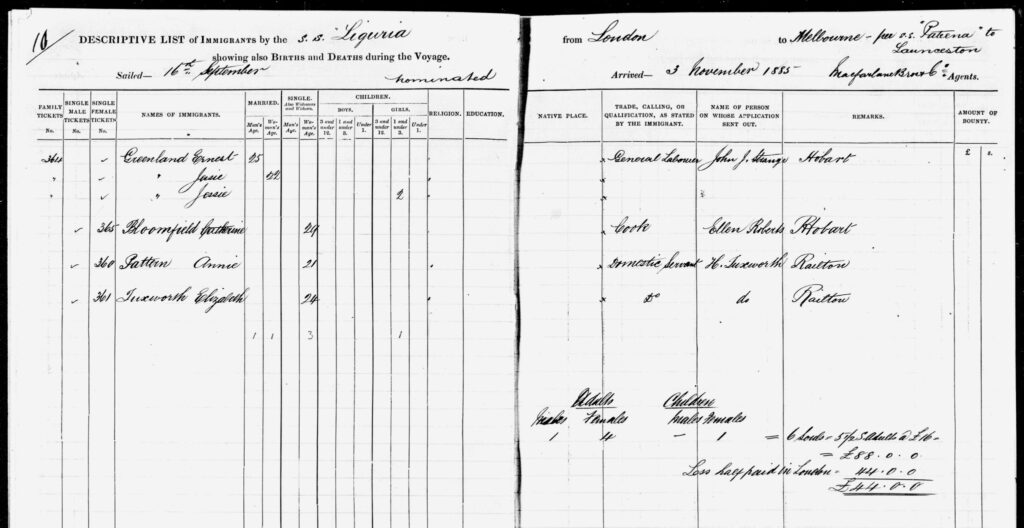 10
DESCRIPTIVE LIST of IMMIGRANTS by the S.S. "Liguria" from London to Melbourne - per s.s. "Pateena" to
showing also BIRTHS and DEATHS during the Voyage. Launceston
Sailed— 16th September nominated Arrived— 3 November 1885 Macfarlane Bros & Co. Agents.
FAMILY TICKETS No. SINGLE MALE TICKETS No. SINGLE FEMALE TICKETS No. NAMES OF IMMIGRANTS. MARRIED. Men's Age. Women's Age. SINGLE. Also Widowers and Widows. Men's Age. Women's Age. CHILDREN. BOYS. 3 and under 12. 1 and under 3. Under 1. GIRLS. 3 and under 12. 1 and under 3. Under 1. RELIGION. EDUCATION. NATIVE PLACE. TRADE, CALLING, OR QUALIFICATION, AS STATED BY THE IMMIGRANT. NAME OF PERSON ON WHOSE APPLICATION SENT OUT. REMARKS. AMOUNT OF BOUNTY.
£ s.
364 Greenland Ernest 25 General Labourer John J. Strange Hobart
" " Susie 22
" " Jessie 2
365 Bloomfield Catherine 29 Cook Ellen Roberts Hobart
360 Pattern Annie 21 Domestic Servant H. Tuxworth Railton
361 Tuxworth Elizabeth 24 Do do Railton
1 1 3 1
Adults Children
Males Females Males Females
1 4 - 1 = 6 Souls = 5½ S. Adults @ £16 =
= £88.0.0
Less half paid in London - 44.0.0
£44.0.0